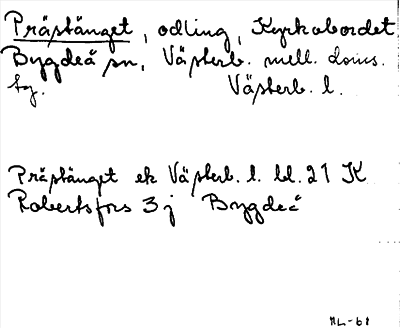 Prästänget, odling, Kyrkobordet
Bygdeå sn, Västerb. mell. doms.
tg. Västerb. l.
Prästänget ek Västerb. l. bl. 21 K
Robertsfors 3 j Bygdeå
ML-61